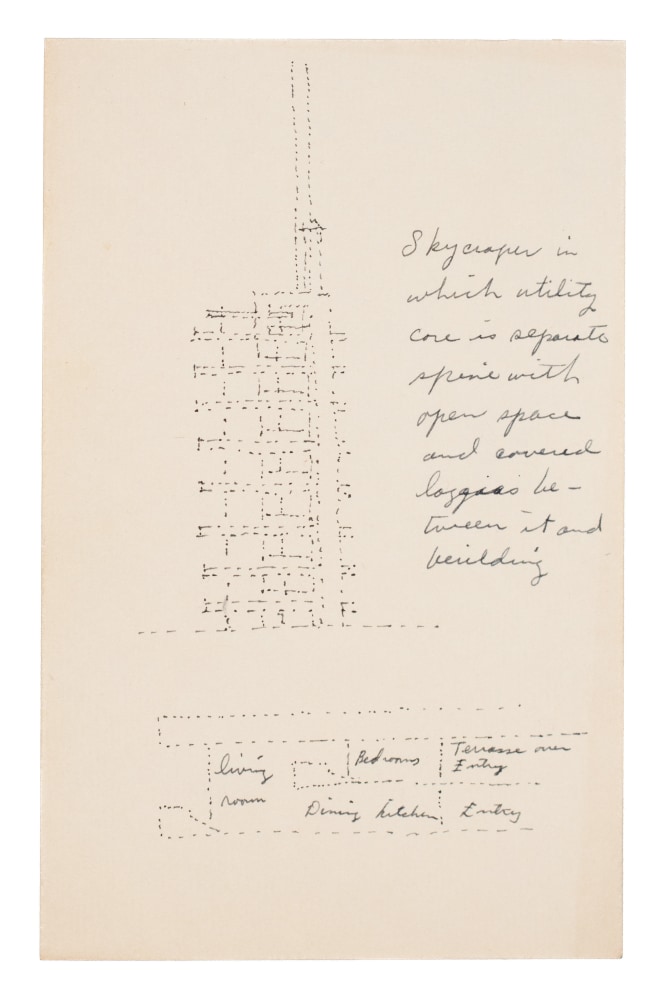 Skycraper in
which utility
core is separate
spine with
open space
and covered
loggias be-
tween it and
building
living
room
Bedrooms
Terrasse over
Entry
Dining kitchen
Entry